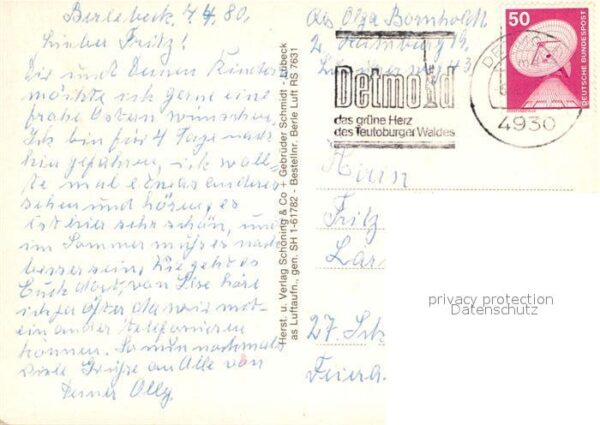 Berlebeck, 7.4.80,
Lieber Fritz!
Dir und Deinen Kindern
möchte ich gerne eine
frohe Ostern wünschen.
Ich bin für 4 Tage nach
hier gefahren, ich woll-
te mal etwas anderes
sehen und hören, es
ist hier sehr schön, und
im Sommer muß es noch
besser sein, wie geht es
Euch dort, von Ilse höre
ich ja öfter da wir mit-
einander telefonieren
können. So nun nochmals
viele Grüße an Alle von
Deiner Olly
Herst. u. Verlag Schöning & Co + Gebrüder Schmidt - Lübeck
as Luftaufn., gen. SH 1-61782 - Bestellnr. Berle Luft RS 7631
Abs Olga Bornholdt
2 Hamburg 19,
43
Detmold
das grüne Herz
des Teutoburger Waldes
DE
4930
50
DEUTSCHE BUNDESPOST
Fritz
Lar
27.
Feierd.
privacy protection
Datenschutz